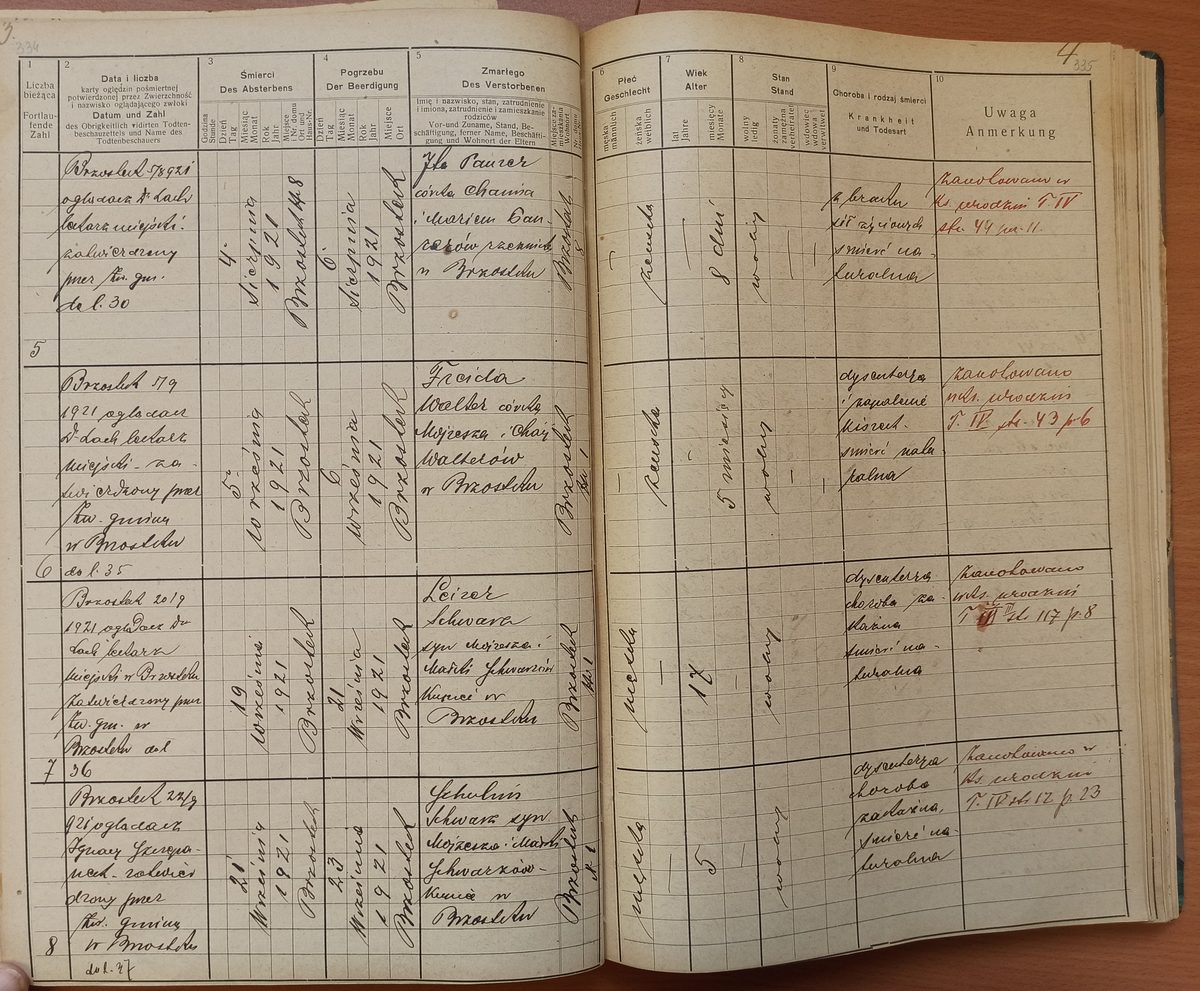 3.
334
1
Liczba
bieżąca
Fortlau-
fende
Zahl
2
Data i liczba
karty oględzin pośmiertnej
potwierdzonej przez Zwierzchność
i nazwisko oglądającego zwłoki
Datum und Zahl
des Obrigkeitlich vidirten Todten-
beschauzettels und Name des
Todtenbeschauers
3
Śmierci
Des Absterbens
Godzina
Stunde
Dzień
Tag
Miesiąc
Monat
Rok
Jahr
Miejsce
i Nr. domu
Ort und
Haus-Nr.
4
Pogrzebu
Der Beerdigung
Dzień
Tag
Miesiąc
Monat
Rok
Jahr
Miejsce
Ort
5
Zmarłego
Des Verstorbenen
Imię i nazwisko, stan, zatrudnienie
i imiona, zatrudnienie i zamieszkanie
rodziców
Vor-und Zuname, Stand, Be-
schäftigung, ferner Name, Beschäfti-
gung und Wohnort der Eltern
4
335
6
Płeć
Geschlecht
męska
männlich
żeńska
weiblich
7
Wiek
Alter
lat
Jahre
miesięcy
Monate
8
Stan
Stand
wolny
ledig
żonaty
zamężna
verheiratet
wdowiec
wdowa
verwitwet
9
Choroba i rodzaj śmierci
Krankheit
und Todesart
10
Uwaga
Anmerkung
5
Brzostek 5/8 921
oglądacz Dr Lach
lekarz miejski
zatwierdzony
przez Zw. gm.
do l. 30
4
Sierpnia
1921
Brzostek 148
6
Sierpnia
1921
Brzostek
Panzer
córka Chaima
i Mariem Pan-
zerów rzeźnika
w Brzostku
Brzostek
żeńska
8 dni
wolny
z braku
sił życiowych
śmierć na-
turalna
Zanotowano w
ks. urodzin T IV
str. 44 p. 11.
6
Brzostek 5/9
1921 oglądacz
Dr Lach lekarz
miejski - za-
twierdzony przez
Zw. gminy
w Brzostku
do l. 35
5
września
1921
Brzostek
6
września
1921
Brzostek
Freida
Walter córka
Mojżesza i Chai
Walterów
w Brzostku
Brzostek
żeńska
5 miesięcy
wolny
dysenterya
i zapalenie
kiszek
śmierć natu
ralna
Zanotowano
w ks. urodzin
T. IV. str. 43 p. 6
7
Brzostek 20/9
1921 oglądacz Dr
Lach lekarz
miejski w Brzostku
zatwierdzony przez
Zw. gm. w
Brzostku do l
36
19
września
1921
Brzostek
21
Września
1921
Brzostek
Leizer
Schwarz
syn Mojżesza i
Schwarzów
Kupiec w
Brzostku
Brzostek
męska
17
wolny
dysenterya
choroba za-
kaźna
śmierć na-
turalna
Zanotowano
w ks. urodzin
T III str 117 p. 8
8
Brzostek 22/9
921 oglądacz
Ignacy Szczepa-
nek - zatwier
dzony przez
Zw. gminy
w Brzostku
do l. 37
21
Września
1921
Brzostek
23
Września
1921
Brzostek
Schulim
Schwarz syn
Mojżesza i
Schwarzów -
Kupiec w
Brzostku
Brzostek
męska
5
wolny
dysenterya
choroba
zakaźna,
śmierć na-
turalna
Zanotowano w
ks. urodzin
T. IV str. 12 p. 23